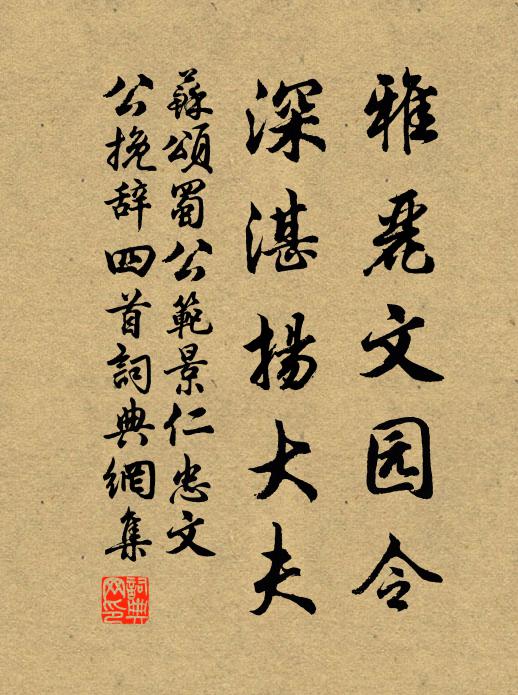 雅麗文园令
深湛揚大夫
蘇頌蜀公範景仁忠文
公挽辞四首詞典網集
詞典网印